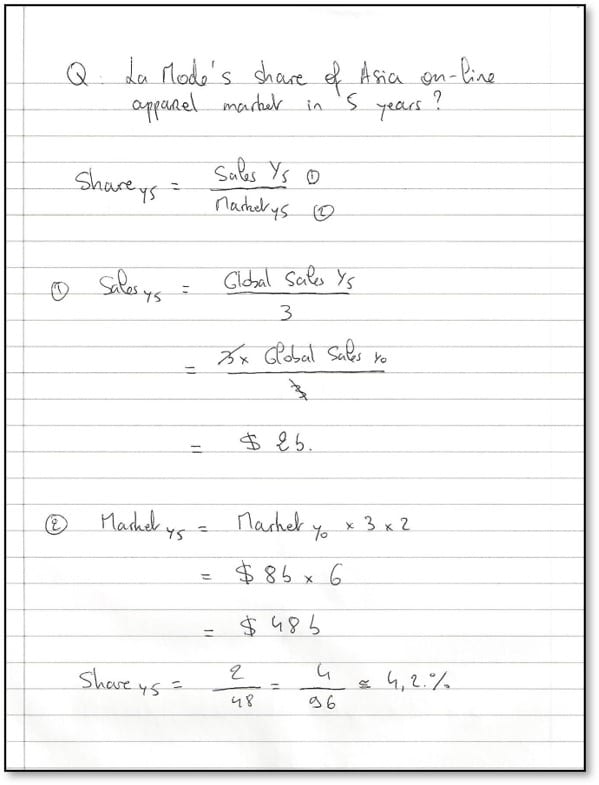 Q. La Mode's share of Asia on-line
apparel market in 5 years?
Share Y5 = Sales Y5 ①
Market Y5 ②
① Sales Y5 = Global Sales Y5
3
= 3 x Global Sales Y0
3
= $ 2b.
② Market Y5 = Market Y0 x 3 x 2
= $ 8b x 6
= $ 48b
Share Y5 = 2 = 4 ≅ 4,2.%
48 96